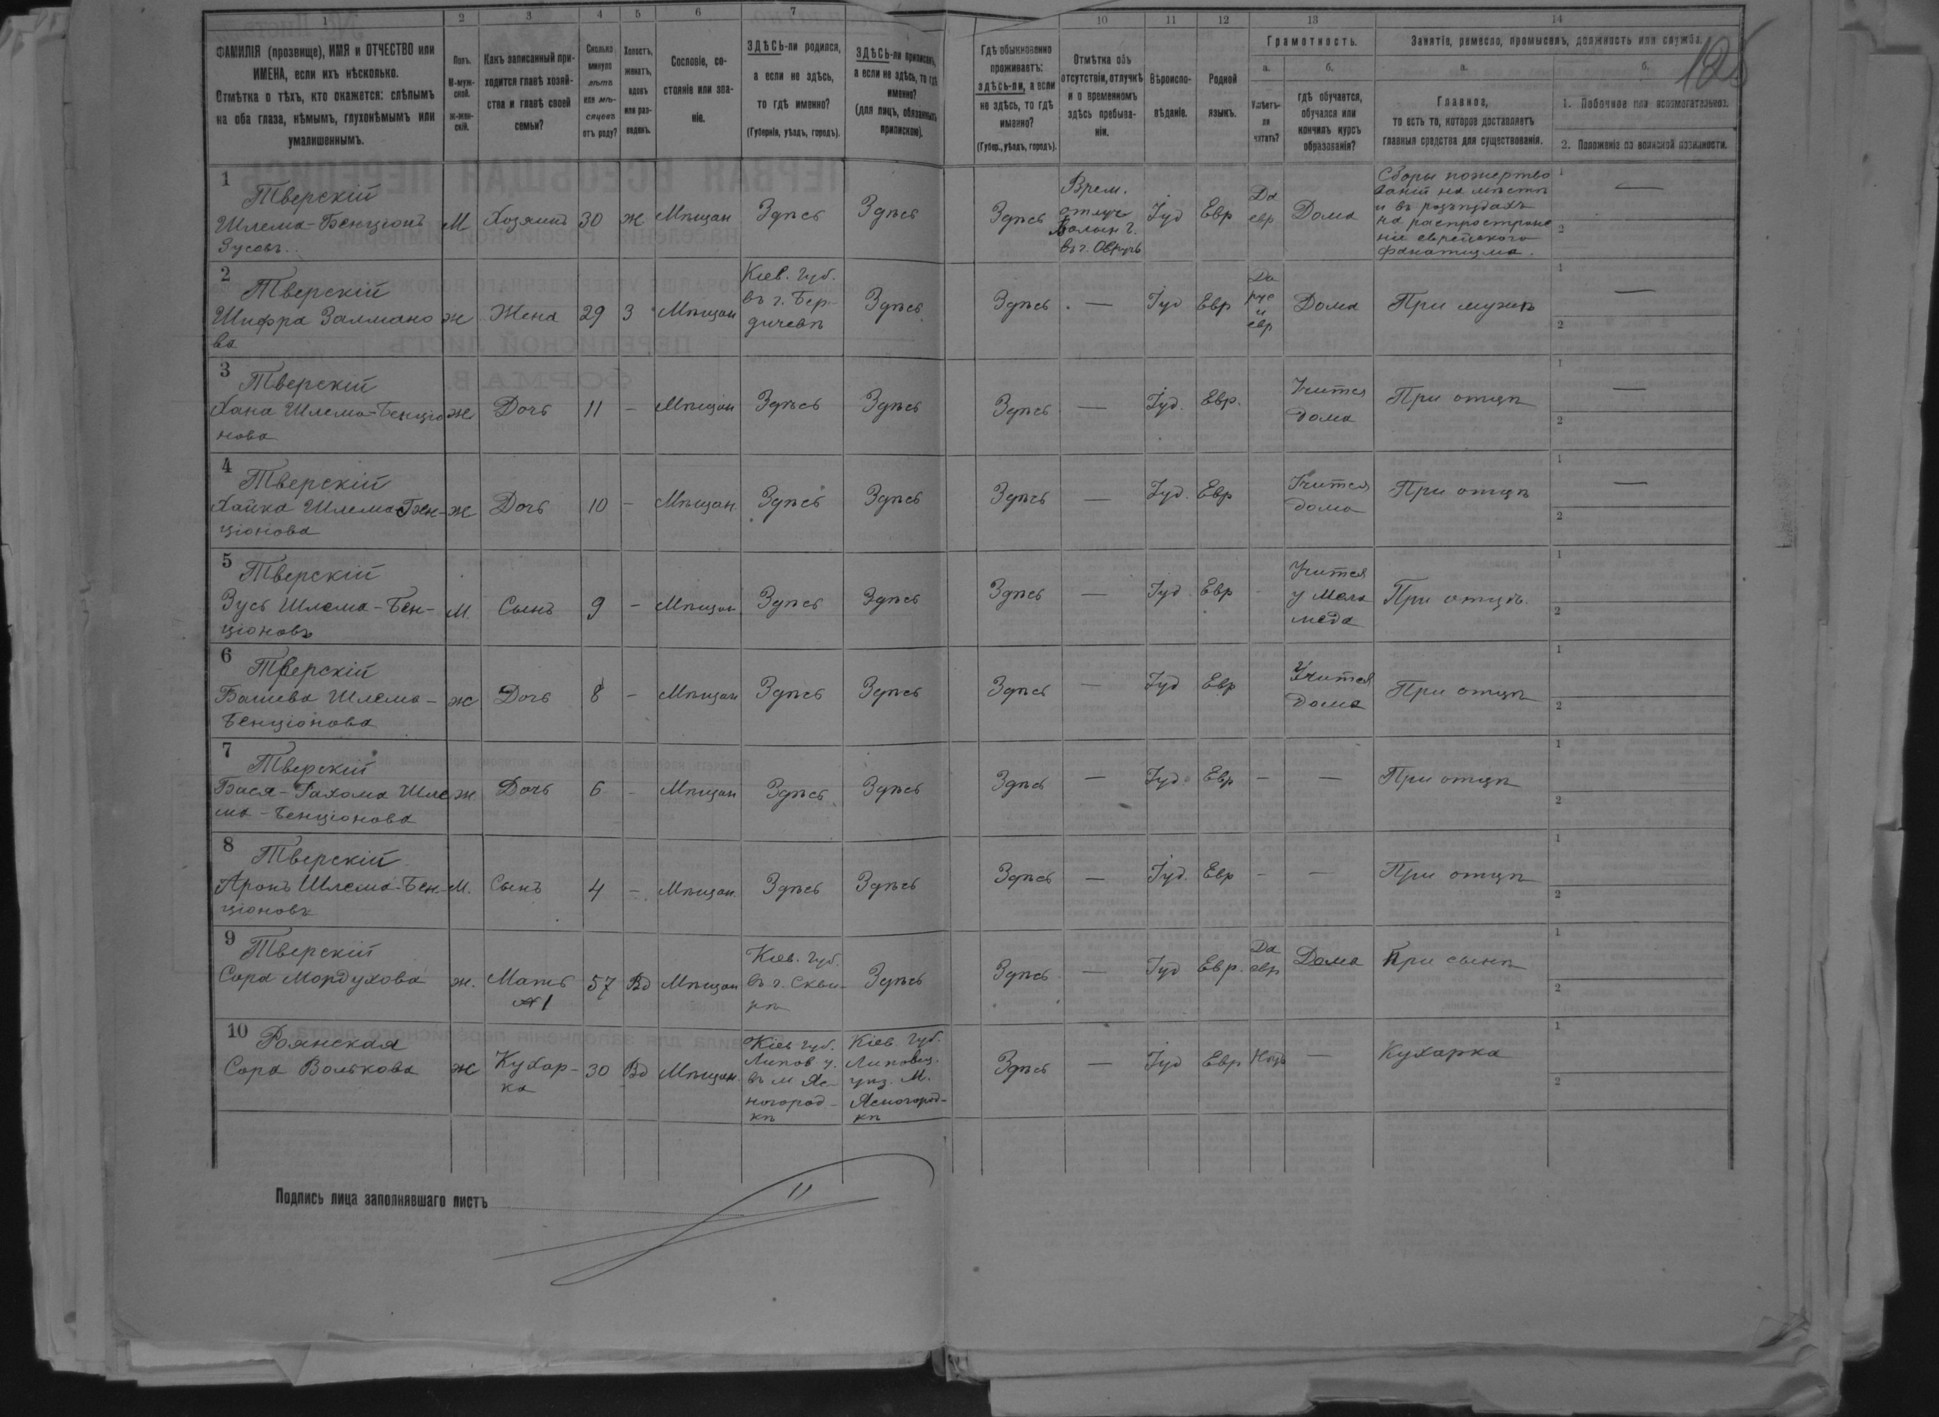 1 2 3 4 5 6 7 10 11 12 13 14
ФАМИЛІЯ (прозвище), ИМЯ и ОТЧЕСТВО или ИМЕНА, если ихъ нѣсколько.
Отмѣтка о тѣхъ, кто окажется: слѣпымъ на оба глаза, нѣмымъ, глухонѣмымъ или умалишеннымъ.
Полъ. М-мужской. Ж-женскій.
Какъ записанный приходится главѣ хозяйства и главѣ своей семьи?
Сколько минуло лѣтъ или мѣсяцевъ отъ роду?
Холостъ, женатъ, вдовъ или разведенъ.
Сословіе, состояніе или званіе.
ЗДѢСЬ-ли родился, а если не здѣсь, то гдѣ именно?
(Губернія, уѣздъ, городъ).
ЗДѢСЬ-ли приписанъ, а если не здѣсь, то гдѣ именно?
(для лицъ, обязанныхъ припискою).
Гдѣ обыкновенно проживаетъ: здѣсь-ли, а если не здѣсь, то гдѣ именно?
(Губер., уѣздъ, городъ).
Отмѣтка объ отсутствіи, отлучкѣ и о временномъ здѣсь пребываніи.
Вѣроисповѣданіе.
Родной языкъ.
Грамотность.
а. Умѣетъ-ли читать?
б. гдѣ обучается, обучался или кончилъ курсъ образованія?
Занятіе, ремесло, промыселъ, должность или служба.
а. Главное, то есть то, которое доставляетъ главныя средства для существованія.
б.
1. Побочное или вспомогательное.
2. Положеніе по воинской повинности.
1 Тверскій
Шлема-Бенціонъ Зусевъ. М Хозяинъ 30 ж Мѣщан Здѣсь Здѣсь Здѣсь Врем. отлуч Волын г. въ г. Овручь Іуд Евр Да евр Дома Сборы пожертвованій на мѣстѣ и въ разъѣздахъ на распространеніе еврейского фанатизма. — 1 2
2 Тверскій
Шифра Залманова ж Жена 29 З Мѣщан Кіев. Губ. въ г. Бердичевѣ Здѣсь Здѣсь — Іуд Евр Да рус и евр Дома При мужѣ — 1 2
3 Тверскій
Хана Шлема-Бенціонова ж Дочь 11 — Мѣщан Здѣсь Здѣсь Здѣсь — Іуд. Евр. Учится дома При отцѣ — 1 2
4 Тверскій
Хайка Шлема-Бенціонова ж Дочь 10 — Мѣщан. Здѣсь Здѣсь Здѣсь — Іуд. Евр Учится дома При отцѣ — 1 2
5 Тверскій
Зусь Шлема-Бенціоновъ М. Сынъ 9 — Мѣщан Здѣсь Здѣсь Здѣсь — Іуд. Евр - Учится у Меламеда При отцѣ. 1 2
6 Тверскій
Башева Шлема-Бенціонова ж Дочь 8 — Мѣщан Здѣсь Здѣсь Здѣсь — Іуд Евр Учится Дома При отцѣ 1 2
7 Тверскій
Бася-Рахома Шлема-Бенціонова ж Дочь 6 — Мѣщан Здѣсь Здѣсь Здѣсь — Іуд. Евр — — При отцѣ 1 2
8 Тверскій
Аронъ Шлема-Бенціоновъ М. Сынъ 4 — Мѣщан. Здѣсь Здѣсь Здѣсь — Іуд. Евр — — При отцѣ 1 2
9 Тверскій
Сора Мордухова ж. Мать № 1 57 Вд Мѣщан Кіев. Губ. въ г. Сквирѣ Здѣсь Здѣсь — Іуд Евр. Да евр Дома При сынѣ 1 2
10 Роянская
Сора Волькова ж Кухарка 30 Вд Мѣщан. Кіев Губ. Липов у. въ м Ясногородкѣ Кіев Губ. Липовец. уѣз. М. Ясногородкѣ Здѣсь — Іуд Евр Нѣтъ — Кухарка 1 2
Подпись лица заполнявшаго листъ